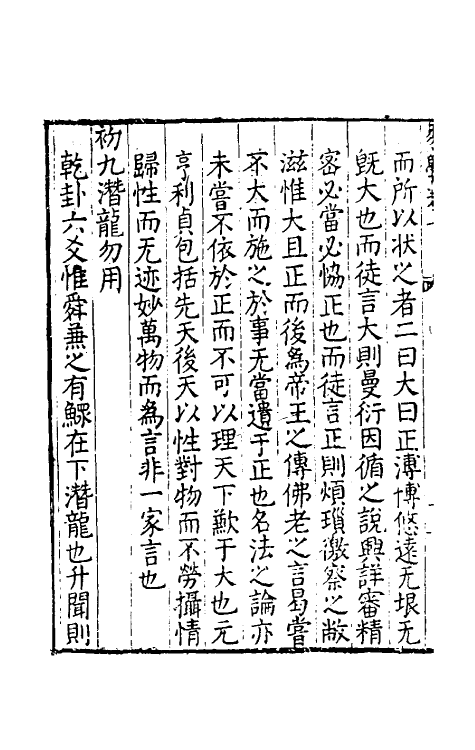 而所以状之者二曰大曰正溥博悠遠无垠无
旣大也而徒言大則曼衍因循之說興詳審精
密必當必恊正也而徒言正則煩瑣徼察之敝
滋惟大且正而後爲帝王之傳佛老之言曷嘗
不大而施之於事无當遺于正也名法之論亦
未嘗不依於正而不可以理天下歉于大也元
亨利貞包括先天後天以性對物而不勞攝情
歸性而无迹妙萬物而爲言非一家言也
初九潛龍勿用
乾卦六爻惟舜兼之有鰥在下潛龍也升聞則